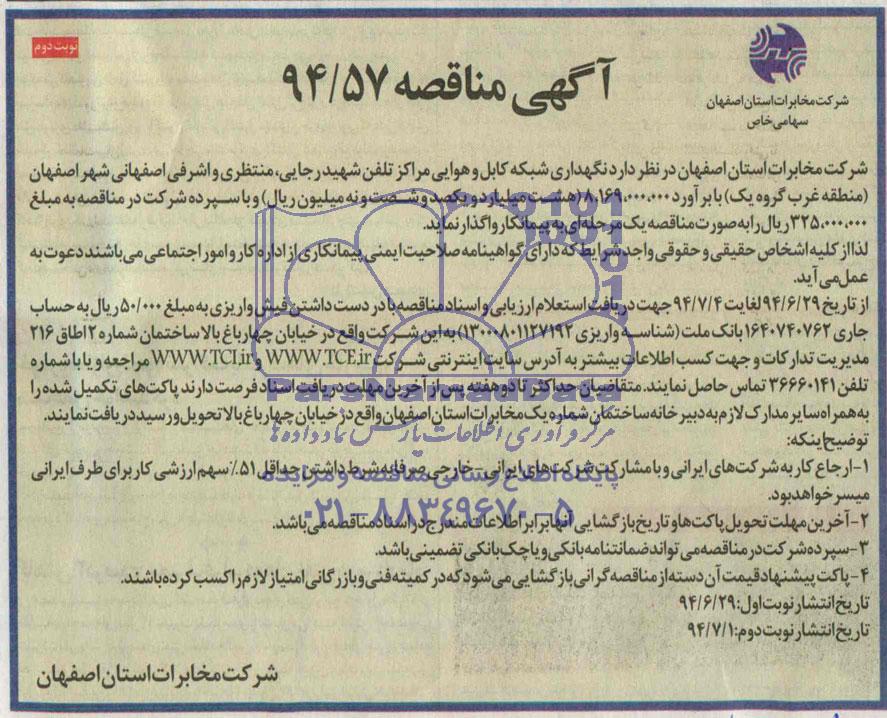 نوبت دوم
آگهی مناقصه ۹۴/۵۷
شرکت مخابرات استان اصفهان
سهامی خاص
شرکت مخابرات استان اصفهان در نظر دارد نگهداری شبکه کابل و هوایی مراکز تلفن شهید رجایی، منتظری و اشرفی اصفهانی شهر اصفهان
(منطقه غرب گروه یک) با برآورد ۸،۱۶۹،۰۰۰،۰۰۰ (هشت میلیارد و یکصد و شصت و نه میلیون ریال) و با سپرده شرکت در مناقصه به مبلغ
۳۲۵،۰۰۰،۰۰۰ ریال را به صورت مناقصه یک مرحله‌ای به پیمانکار واگذار نماید.
لذا از کلیه اشخاص حقیقی و حقوقی واجد شرایط که دارای گواهینامه صلاحیت ایمنی پیمانکاری از اداره کار و امور اجتماعی می‌باشند دعوت به
عمل می‌آید.
از تاریخ ۹۴/۶/۲۹ لغایت ۹۴/۷/۴ جهت دریافت استعلام ارزیابی و اسناد مناقصه با در دست داشتن فیش واریزی به مبلغ ۵۰/۰۰۰ ریال به حساب
جاری ۱۶۴۰۷۴۰۷۶۲ بانک ملت (شناسه واریزی ۱۳۰۰۰۸۰۱۱۲۷۱۹۲) به این شرکت واقع در خیابان چهارباغ بالا ساختمان شماره ۲ اطاق ۲۱۶
مدیریت تدارکات و جهت کسب اطلاعات بیشتر به آدرس سایت اینترنتی شرکت WWW.TCE.ir و WWW.TCI.ir مراجعه و یا با شماره
تلفن ۳۶۶۶۰۱۴۱ تماس حاصل نمایند. متقاضیان حداکثر تا دو هفته پس از آخرین مهلت دریافت اسناد فرصت دارند پاکت‌های تکمیل شده را
به همراه سایر مدارک لازم به دبیرخانه ساختمان شماره یک مخابرات استان اصفهان واقع در خیابان چهارباغ بالا تحویل و رسید دریافت نمایند.
توضیح اینکه:
۱- ارجاع کار به شرکت‌های ایرانی و با مشارکت شرکت‌های ایرانی - خارجی صرفا به شرط داشتن حداقل ۵۱٪ سهم ارزشی کار برای طرف ایرانی
میسر خواهد بود.
۲- آخرین مهلت تحویل پاکت‌ها و تاریخ بازگشایی آنها برابر اطلاعات مندرج در اسناد مناقصه می‌باشد.
۳- سپرده شرکت در مناقصه می‌تواند ضمانتنامه بانکی و یا چک بانکی تضمینی باشد.
۴- پاکت پیشنهاد قیمت آن دسته از مناقصه گرانی بازگشایی می‌شود که در کمیته فنی و بازرگانی امتیاز لازم را کسب کرده باشند.
تاریخ انتشار نوبت اول: ۹۴/۶/۲۹
تاریخ انتشار نوبت دوم: ۹۴/۷/۱
شرکت مخابرات استان اصفهان
ParsNamadData
مرکز فرآوری اطلاعات پارس نماد داده‌ها
پایگاه اطلاع رسانی مناقصه و مزایده
۰۲۱-۸۸۳۴۹۶۷۰-۵